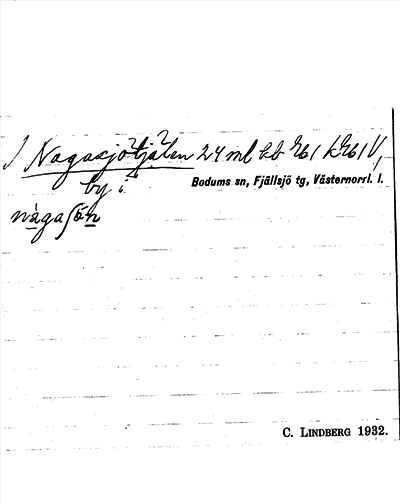 Nagasjötjälen 24 ml kb
by i
Bodums sn, Fjällsjö tg, Västernorrl. l.
nàgaʃǿn
C. LINDBERG 1932.